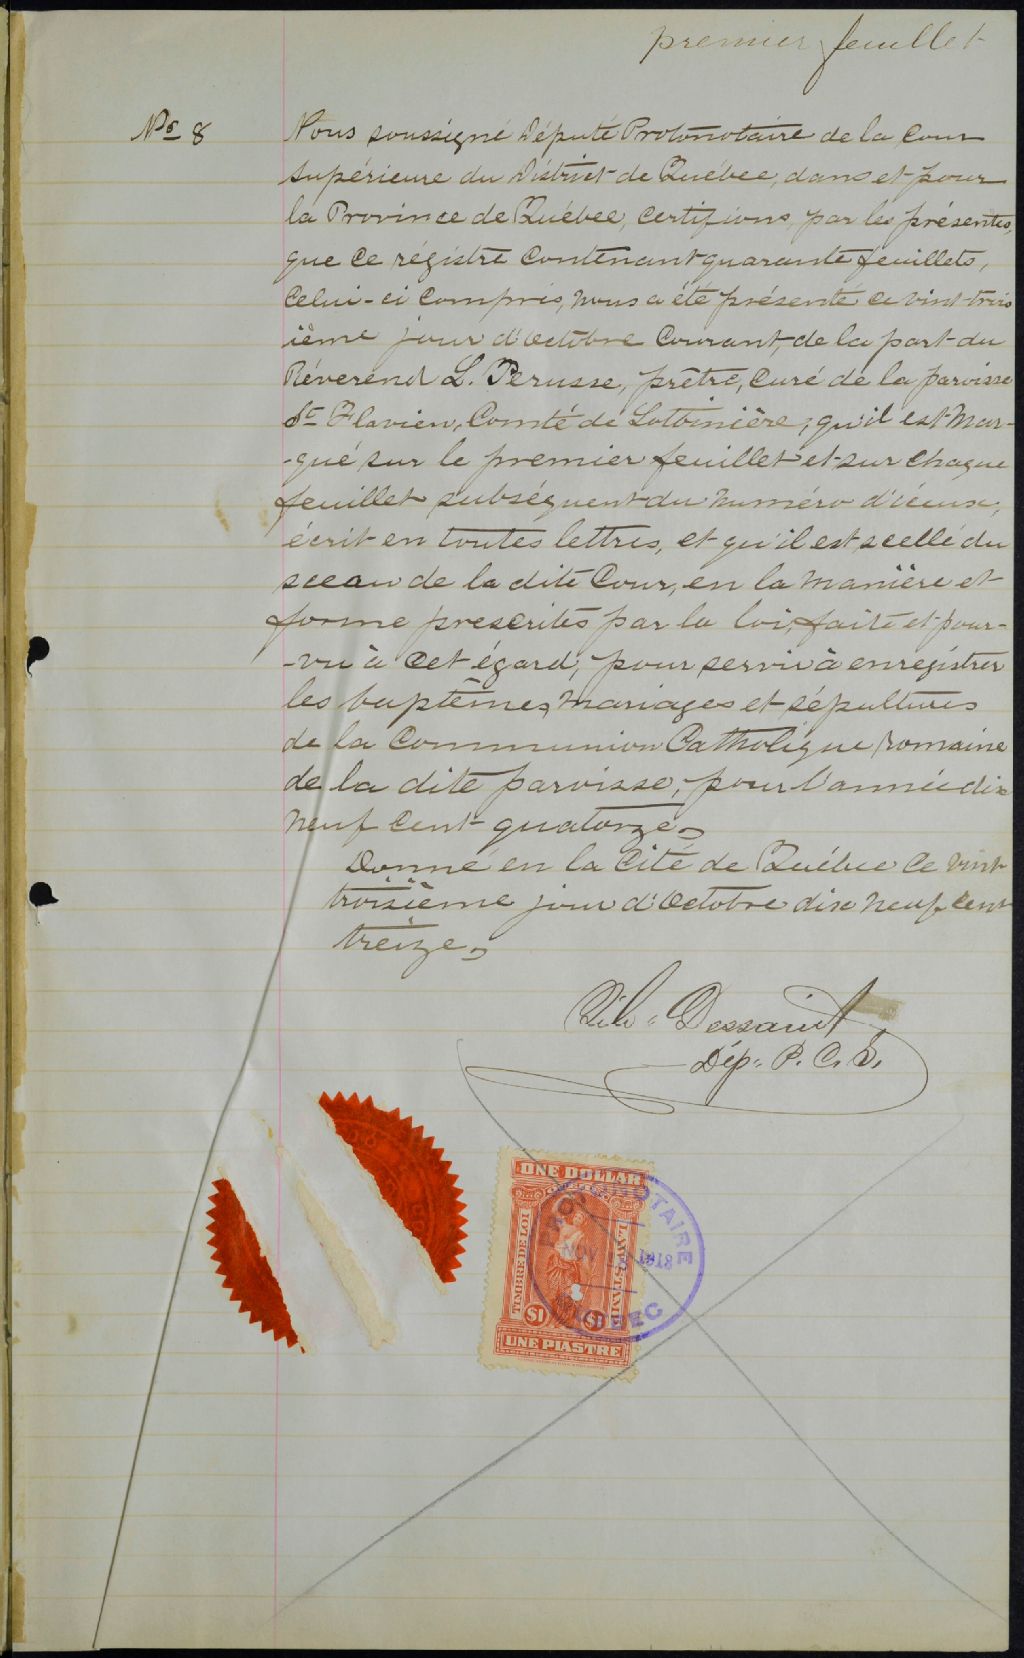 premier feuillet
No 8
Nous soussigné Député Protonotaire de la Cour
Supérieure du District de Québec, dans et pour
la Province de Québec, certifions, par les présentes,
que ce régistre contenant quarante feuillets,
celui-ci compris, nous a été présenté ce vint-trois
ième jour d'octobre courant, de la part du
Réverend L. Perusse, prêtre, curé de la paroisse
St Flavien, Comté de Lotbinière; qu'il est mar-
-qué sur le premier feuillet et sur chaque
feuillet subséquent du numéro d'iceux,
écrit en toutes lettres, et qu'il est scellé du
sceau de la dite Cour, en la manière et
forme prescrites par la loi, faite et pour-
-vu à cet égard, pour servir à enregistrer
les baptêmes, mariages et sépultures
de la Communion Catholique romaine
de la dite paroisse, pour l'année dix
neuf cent quatorze
Donné en la Cité de Québec ce vint
troisième jour d'Octobre dix neuf cent
treize
Dessaint
Dép: P. C. S.
ONE DOLLAR
TIMBRE DE LOI
LAW STAMP
$1 $1
UNE PIASTRE
PROTONOTAIRE
NOV
QUEBEC